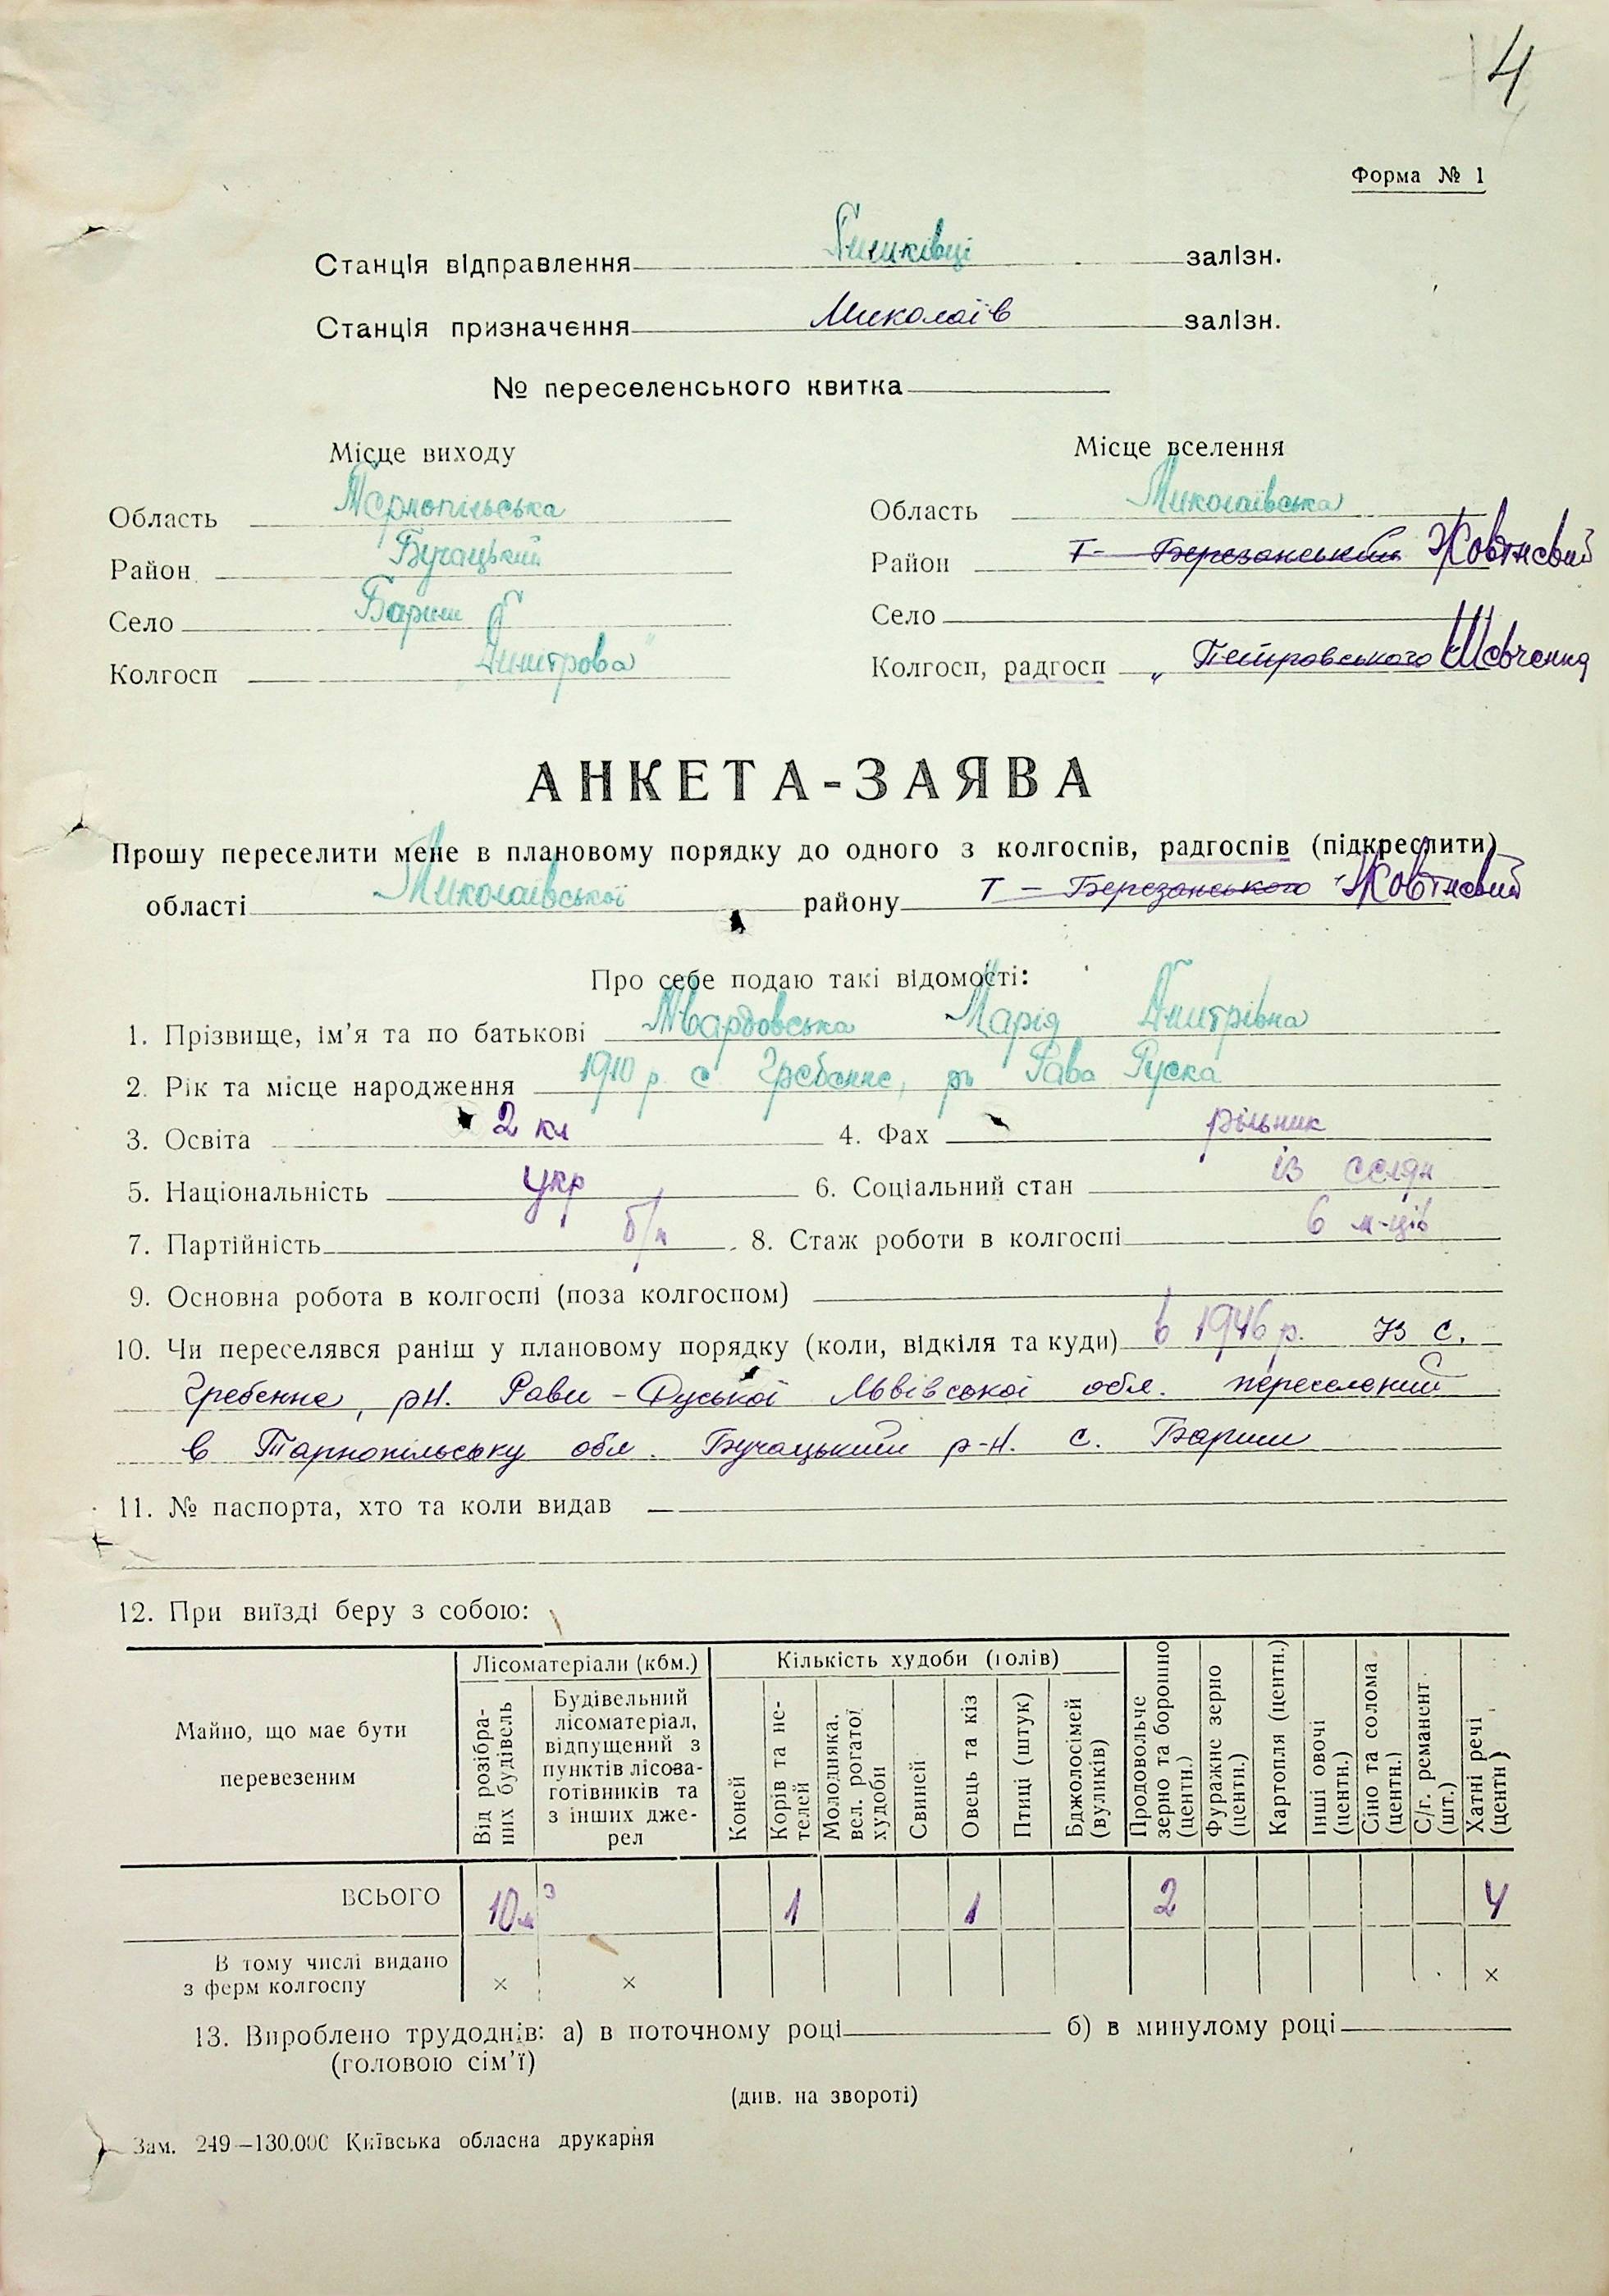 4
Форма № 1
Станція відправлення Пишківці залізн.
Станція призначення Миколаїв залізн.
№ переселенського квитка
Місце виходу Місце вселення
Область Тернопільська Область Миколаївська
Район Бучацький Район Т-Березанський Жовтневий
Село Бариш Село
Колгосп Димитрова" Колгосп, радгосп „Петровського Шевченка
АНКЕТА-ЗАЯВА
Прошу переселити мене в плановому порядку до одного з колгоспів, радгоспів (підкреслити)
області Миколаївської району Т-Березанського Жовтневий
Про себе подаю такі відомості:
1. Прізвище, ім'я та по батькові Твардовська Марія Дмитрівна
2. Рік та місце народження 1910 р с Гребенне, рн Рава Руска
3. Освіта 2 кл 4. Фах рільник
5. Національність укр 6. Соціальний стан із селян
7. Партійність б/п 8. Стаж роботи в колгоспі 6 м-ців
9. Основна робота в колгоспі (поза колгоспом)
10. Чи переселявся раніш у плановому порядку (коли, відкіля та куди) в 1946 р. Із с.
Гребенне, рн. Рави-Руської Львівської обл. переселений
в Тарнопільську обл. Бучацький р-н. с. Бариш
11. № паспорта, хто та коли видав —
12. При виїзді беру з собою:
Майно, що має бути перевезеним
Лісоматеріали (кбм.)
Від розібраних будівель
Будівельний лісоматеріал, відпущений з пунктів лісозаготівників та з інших джерел
Кількість худоби (голів)
Коней
Корів та нетелей
Молодняка, вел. рогатої худоби
Свиней
Овець та кіз
Птиці (штук)
Бджолосімей (вуликів)
Продовольче зерно та борошно (центн.)
Фуражне зерно (центн.)
Картопля (центн.)
Інші овочі (центн.)
Сіно та солома (центн.)
С/г. реманент (шт.)
Хатні речі (центн)
ВСЬОГО 10м³ 1 1 2 4
В тому числі видано
з ферм колгоспу × × ×
13. Вироблено трудоднів: а) в поточному році б) в минулому році
(головою сім'ї)
(див. на звороті)
Зам. 249—130.000 Київська обласна друкарня